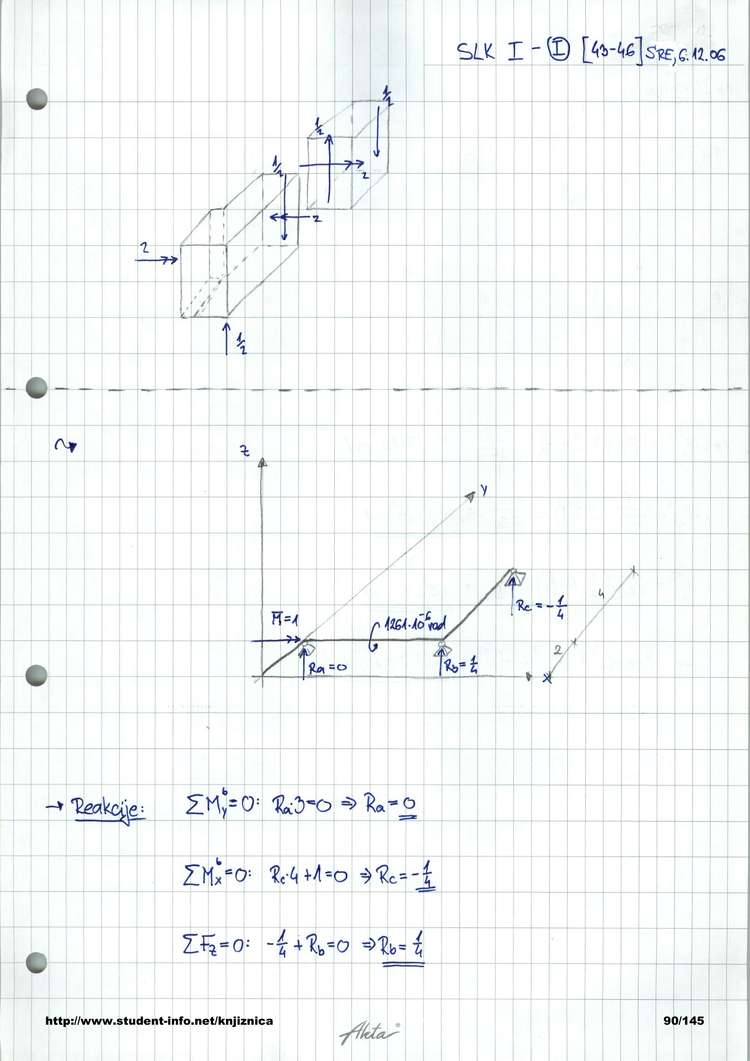 SLK I - Ⓘ [43-46] SRE, 6.12.06
1/2
1/2
1/2
2
2
2
1/2
z
y
4
Rc = -1/4
M̅=1
1261·10⁻⁶ rad
2
Ra=0
Rb=1/4
x
→ Reakcije: ΣMyᵇ=0: Ra·3=0 ⇒ Ra=0
ΣMxᵇ=0: Rc·4+1=0 ⇒ Rc=-1/4
ΣFz=0: -1/4+Rb=0 ⇒ Rb=1/4
http://www.student-info.net/knjiznica
Akta
90/145